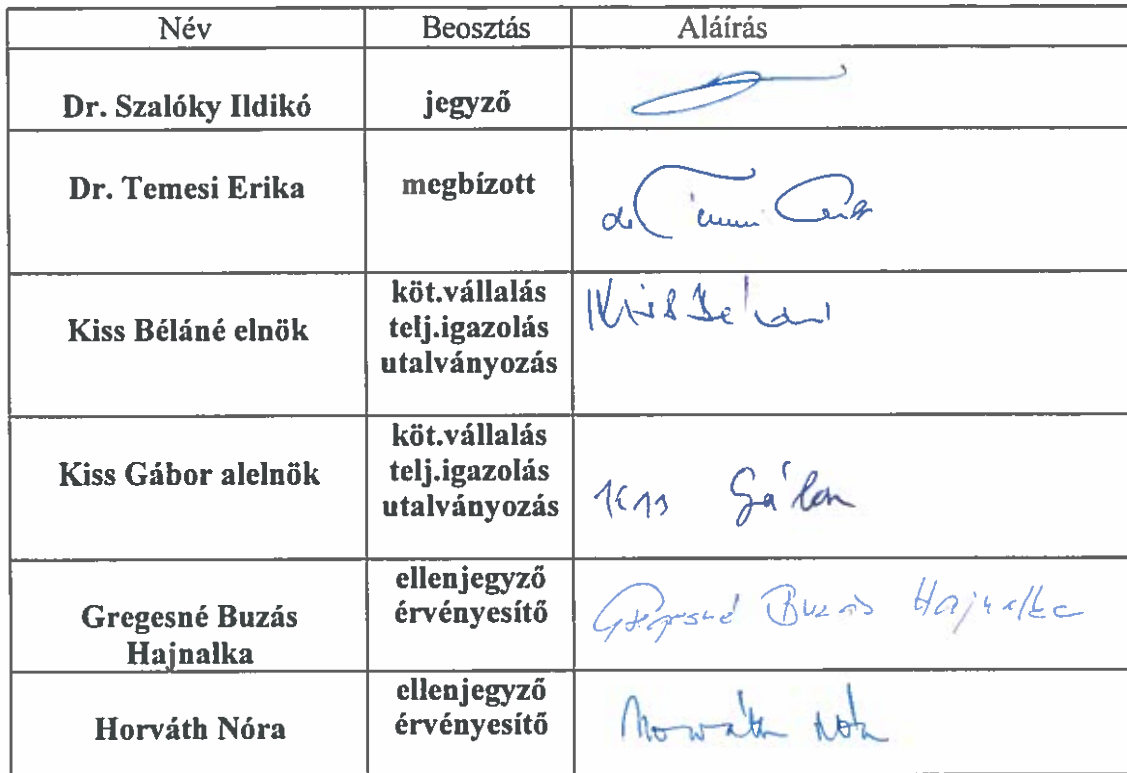 Név Beosztás Aláírás
Dr. Szalóky Ildikó jegyző
Dr. Temesi Erika megbízott
dr
Kiss Béláné elnök
köt.vállalás
telj.igazolás
utalványozás
Kiss Béláné
Kiss Gábor alelnök
köt.vállalás
telj.igazolás
utalványozás
Kiss Gábor
Gregesné Buzás
Hajnalka
ellenjegyző
érvényesítő
Gregesné Buzás Hajnalka
Horváth Nóra
ellenjegyző
érvényesítő
Horváth Nóra